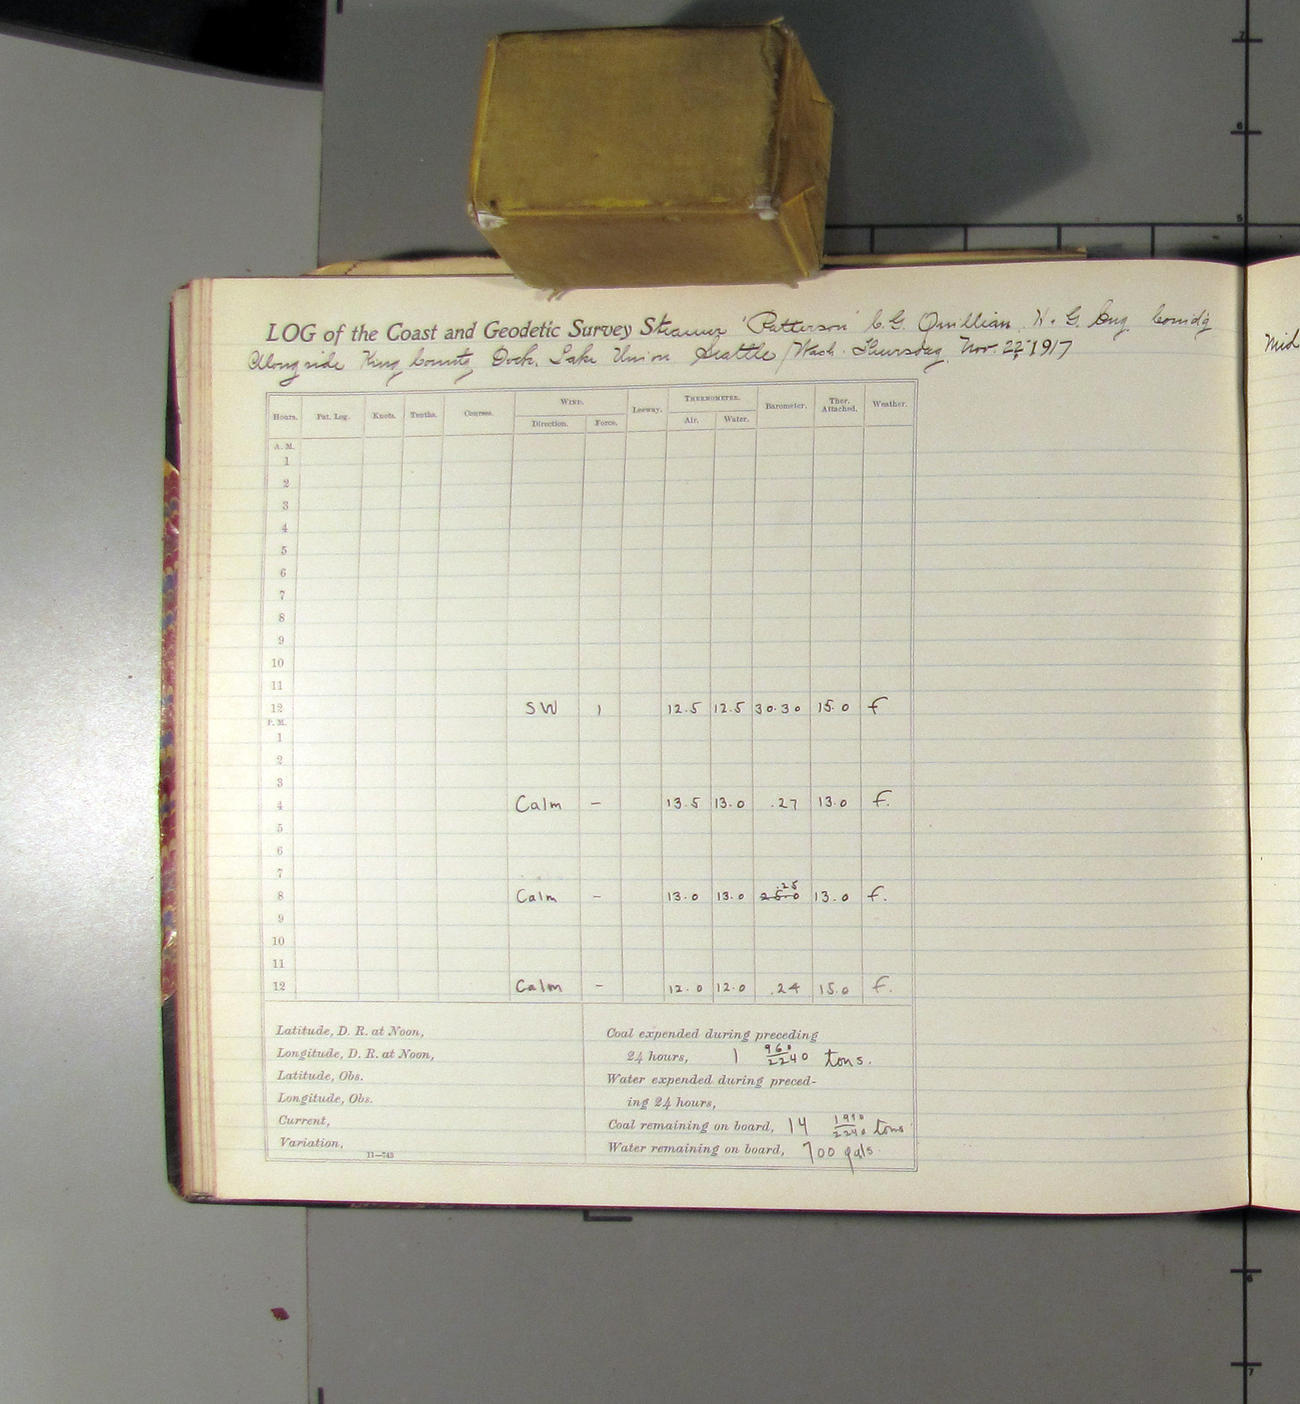 LOG of the Coast and Geodetic Survey Steamer "Patterson" C. G. Quillian, H. & G. Eng. Comd'g
Alongside King County Dock, Lake Union Seattle, Wash. Thursday, Nov. 22, 1917
Hours. Pat. Log. Knots. Tenths. Courses. WIND. Direction. Force. Leeway. THERMOMETER. Air. Water. Barometer. Ther. Attached. Weather.
A. M.
1
2
3
4
5
6
7
8
9
10
11
12 SW 1 12.5 12.5 30.30 15.0 f
P. M.
1
2
3
4 Calm – 13.5 13.0 .27 13.0 f.
5
6
7
8 Calm – 13.0 13.0 .25 13.0 f.
9
10
11
12 Calm – 12.0 12.0 .24 15.0 f.
Latitude, D. R. at Noon,
Longitude, D. R. at Noon,
Latitude, Obs.
Longitude, Obs.
Current,
Variation,
11—743
Coal expended during preceding
24 hours, 1 960/2240 tons.
Water expended during preced-
ing 24 hours,
Coal remaining on board, 14 1990/2240 tons
Water remaining on board, 700 gals.
Mid